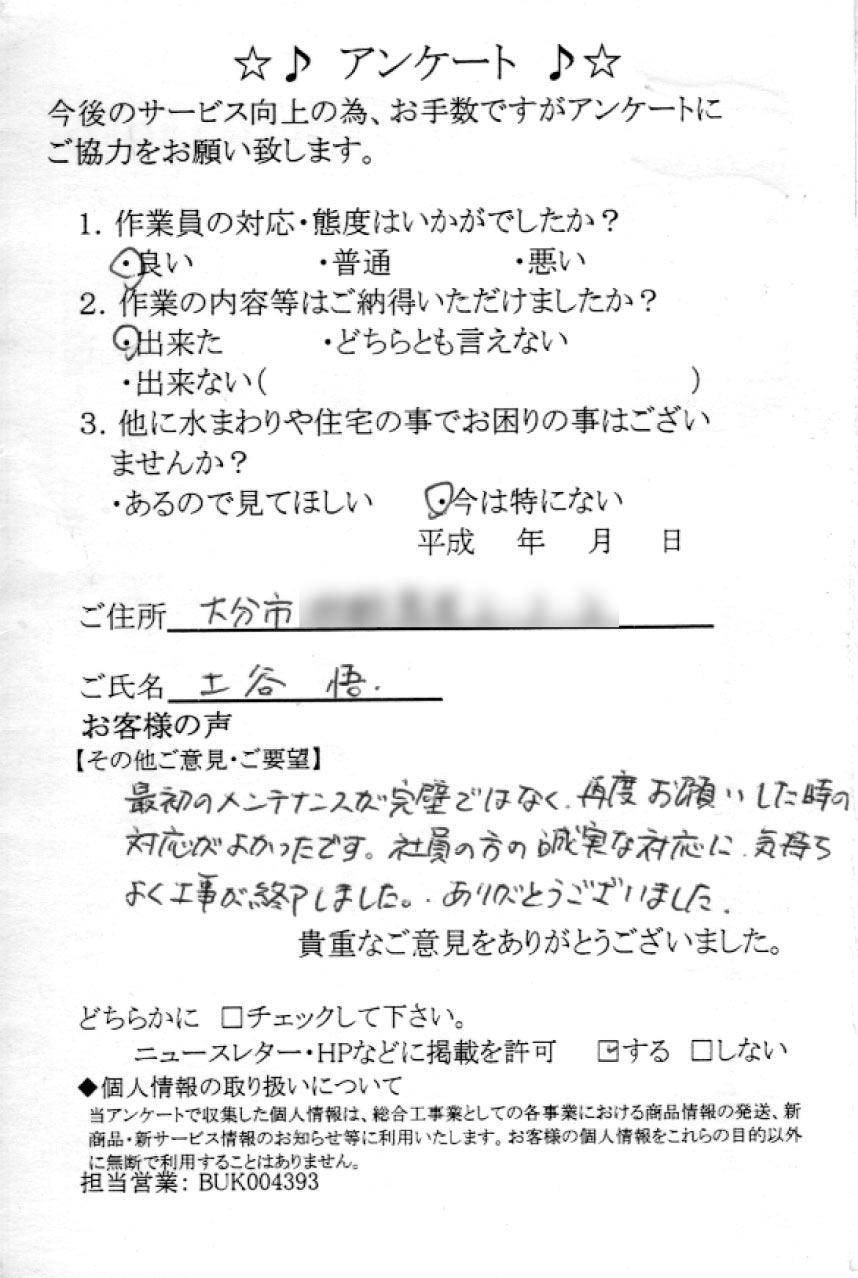 ☆♪ アンケート ♪☆
今後のサービス向上の為、お手数ですがアンケートに
ご協力をお願い致します。
1. 作業員の対応・態度はいかがでしたか?
・良い ・普通 ・悪い
2. 作業の内容等はご納得いただけましたか?
・出来た ・どちらとも言えない
・出来ない( )
3. 他に水まわりや住宅の事でお困りの事はござい
ませんか?
・あるので見てほしい ・今は特にない
平成 年 月 日
ご住所 大分市
ご氏名 土谷 悟.
お客様の声
【その他ご意見・ご要望】
最初のメンテナンスが完璧ではなく、再度お願いした時の
対応がよかったです。社員の方の誠実な対応に、気持ち
よく工事が終了しました。ありがとうございました.
貴重なご意見をありがとうございました。
どちらかに □チェックして下さい。
ニュースレター・HPなどに掲載を許可 ☑する □しない
◆個人情報の取り扱いについて
当アンケートで収集した個人情報は、総合工事業としての各事業における商品情報の発送、新
商品・新サービス情報のお知らせ等に利用いたします。お客様の個人情報をこれらの目的以外
に無断で利用することはありません。
担当営業: BUK004393